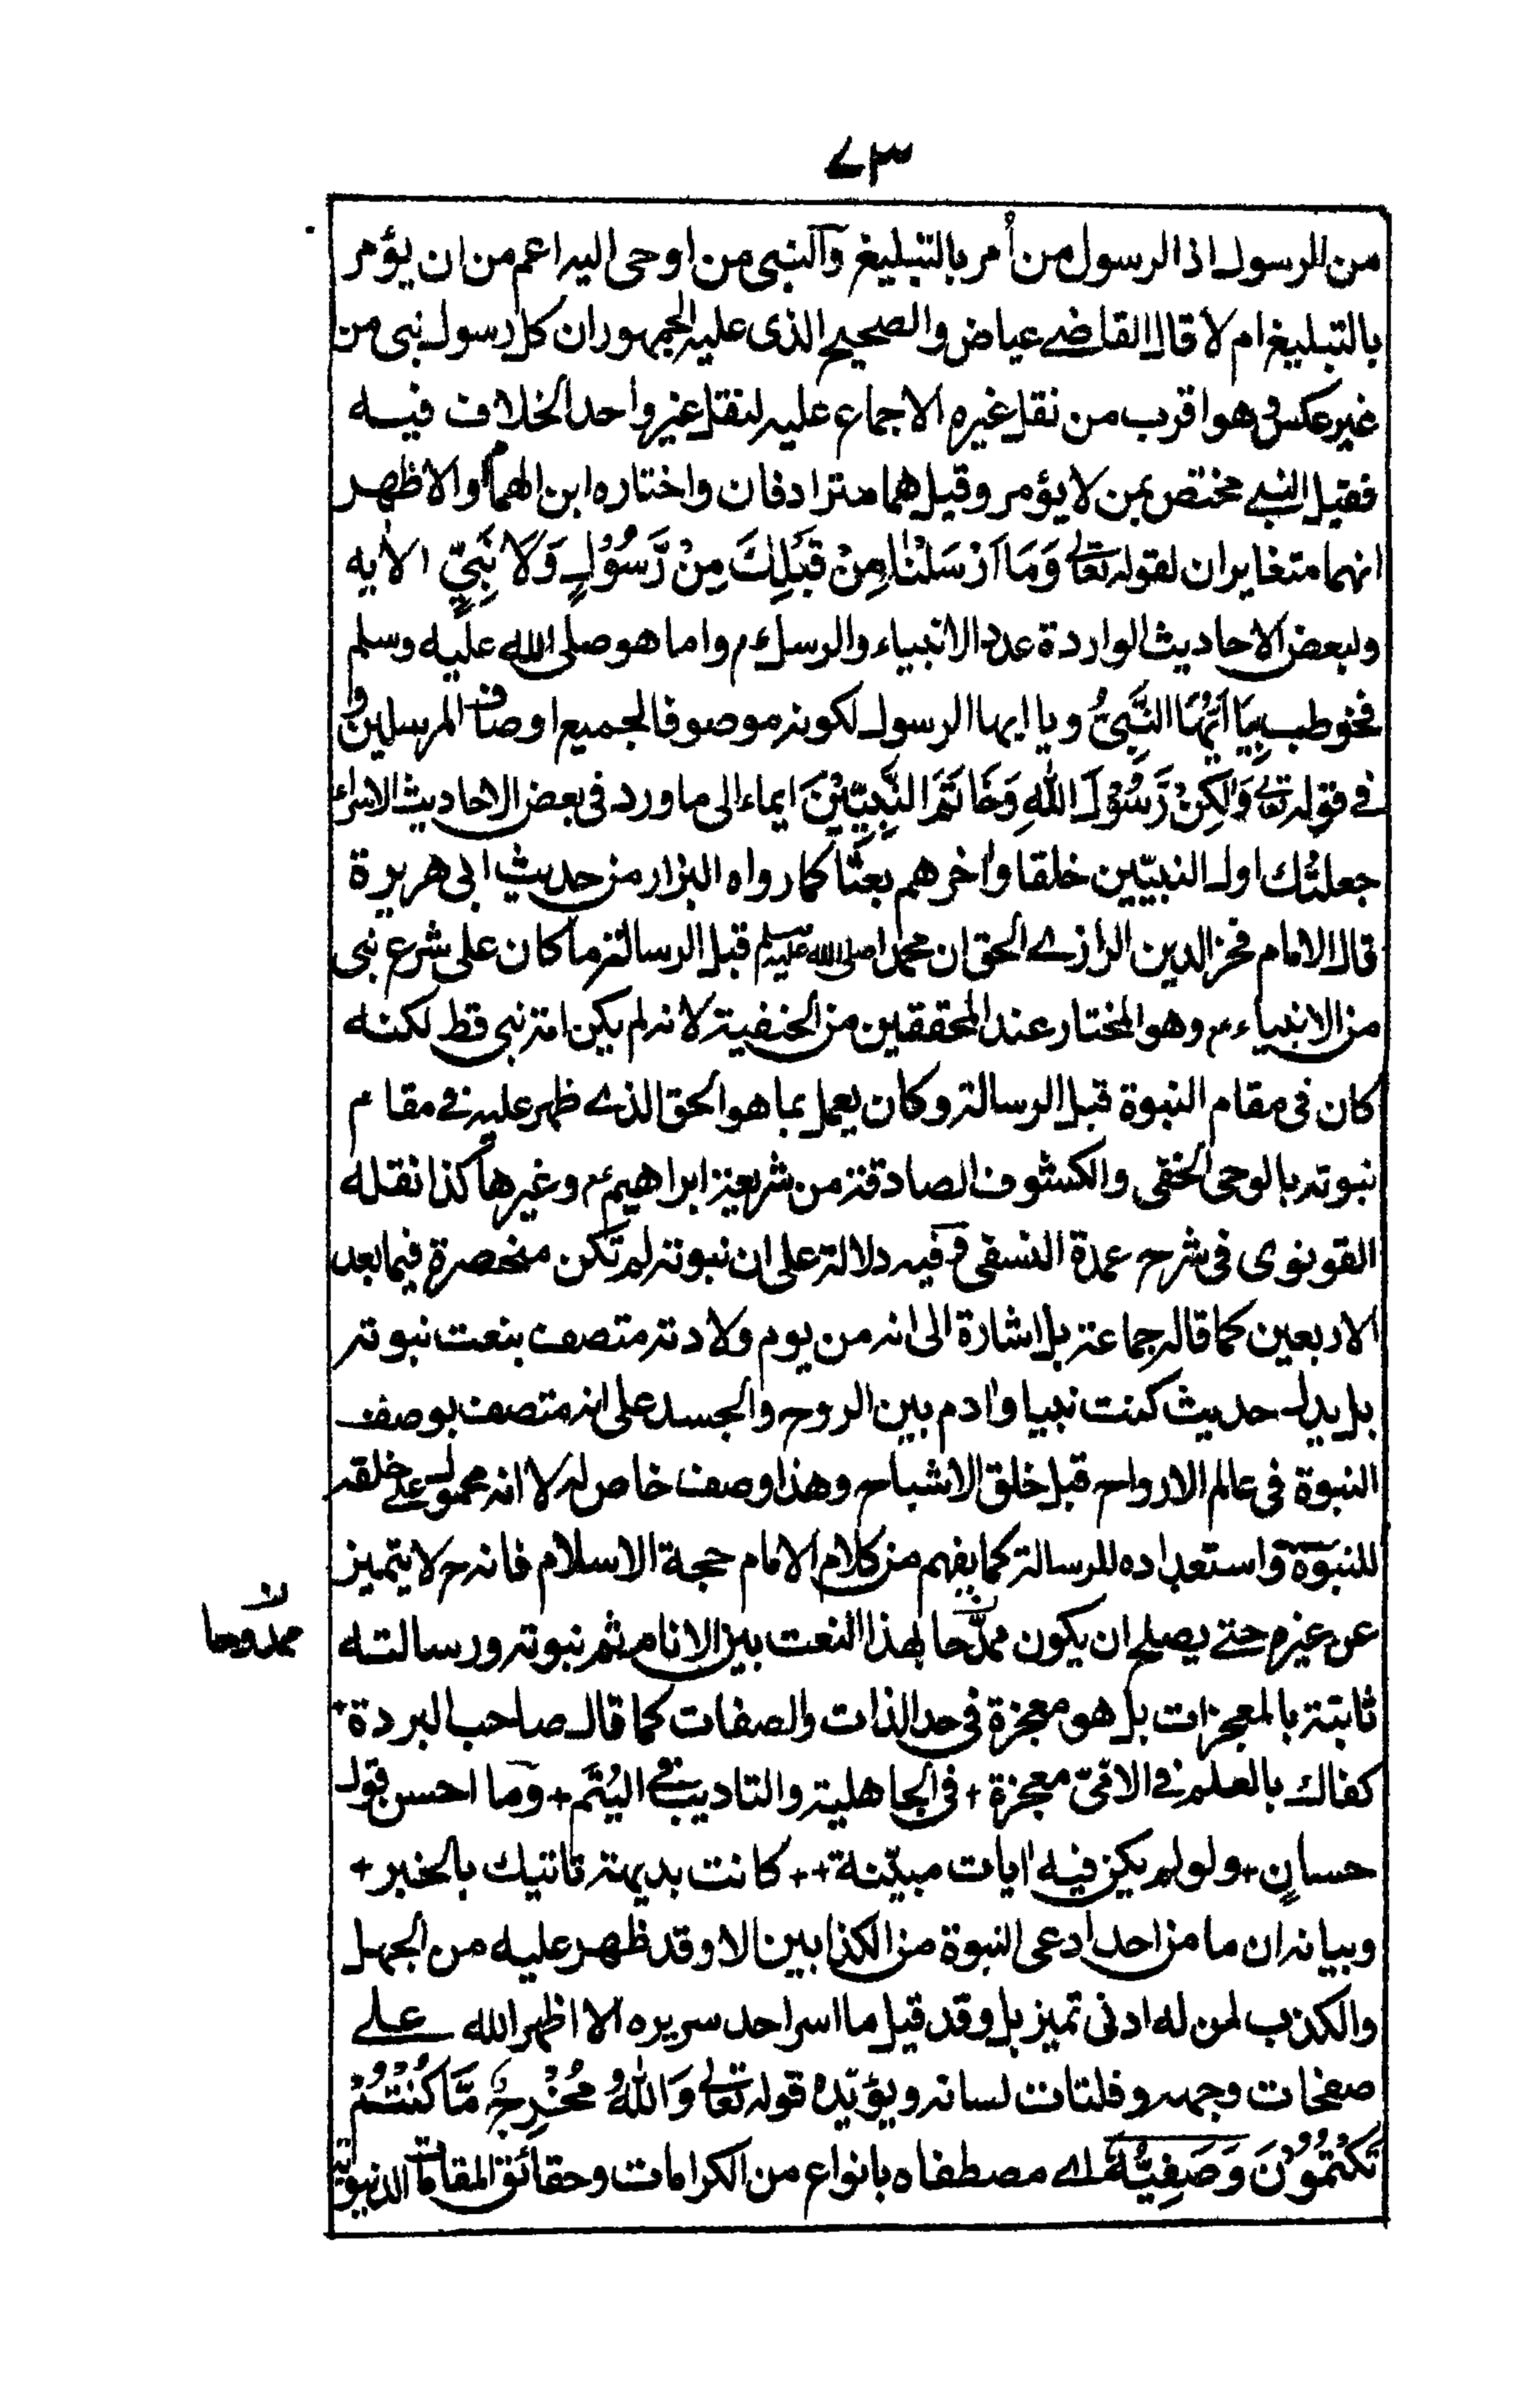 ۷۳
من الرسول اذ الرسول من أمر بالتبليغ والنبى من اوحى اليه اعم من ان يؤمر
بالتبليغ ام لا قال القاضے عياض والصحيح الذى عليه الجمهور ان كل رسول نبى من
غير عكس وهو اقرب من نقل غيره الاجماع عليه لنقل غير واحد الخلاف فيه
فقيل النبے مختص بمن لا يؤمر وقيل هما مترادفان واختاره ابن الهمام والاظهر
انهما متغايران لقوله تعالى وَمَا اَرْسَلْنَا مِنْ قَبْلِكَ مِنْ رَّسُوْلٍ وَلَا نَبِيٍّ الاٰيه
ولبعض الاحاديث الواردة عدد الانبياء والرسل ۴ واما هو صلى الله عليه وسلم
فخوطب بِيَا اَيُّهَا النَّبِيُّ ويا ايها الرسول لكونه موصوفا لجميع اوصاف المرسلين و
فے قوله تعالى وَلٰكِنْ رَّسُوْلَ اللهِ وَخَاتَمَ النَّبِيّيْنَ ايماء الى ما ورد فى بعض الاحاديث الاسراء
جعلتك اول النبيّين خلقا واٰخرهم بعثًا كما رواه البزار من حديث ابى هريرة
قال الامام فخر الدين الرازے الحق ان محمدا صلى الله عليه وسلم قبل الرسالة ما كان على شرع نبى
من الانبياء ۴ وهو المختار عند المحققين من الحنفية لانه لم يكن امة نبى قط لكنه
كان فى مقام النبوة قبل الرسالة وكان يعمل بما هو الحق الذے ظهر عليه فے مقام
نبوته بالوحى الخفى والكشوف الصادقة من شريعة ابراهيم ۴ وغيرها كذا نقله
القونوى فى شرح عمدة النسفى وفيه دلالة على ان نبوته لم تكن منحصرة فيما بعد
الاربعين كما قاله جماعة بل اشارة الى انه من يوم ولادته متصف بنعت نبوته
بل يدل حديث كنت نبيا واٰدم بين الروح والجسد على انه متصف بوصف
النبوة فى عالم الارواح قبل خلق الاشباح وهذا وصف خاص له لا انه محمول علے خلقه
للنبوة واستعداده للرسالة كما يفهم من كلام الامام حجة الاسلام فانه ح لا يتميز
عن غيره حتے يصلح ان يكون ممدّحا بهذا النعت بين الانام ثم نبوته ورسالته
ممدوحا
ثابتة بالمعجزات بل هو معجزة فى حد الذات والصفات كما قال صاحب البردة +
كفاك بالعلم فے الامّى معجزة + فى الجاهلية والتاديب فے اليُتَم + وما احسن قول
حسان + ولو لم يكن فيه اٰيات مبيّنة ++ كانت بديهته تاتيك بالخبر +
وبيانه ان ما من احد ادعى النبوة من الكذابين الا وقد ظهر عليه من الجهل
والكذب لمن له ادنى تميز بل وقد قيل ما اسر احد سريره الا اظهر الله علے
صفحات وجهه وفلتات لسانه ويؤيّده قوله تعالى وَاللّٰهُ مُخْرِجٌ مَّا كُنْتُمْ
تَكْتُمُوْنَ وَصَفِيُّهٗ اے مصطفاه بانواع من الكرامات وحقائق المقامات الدنيوية